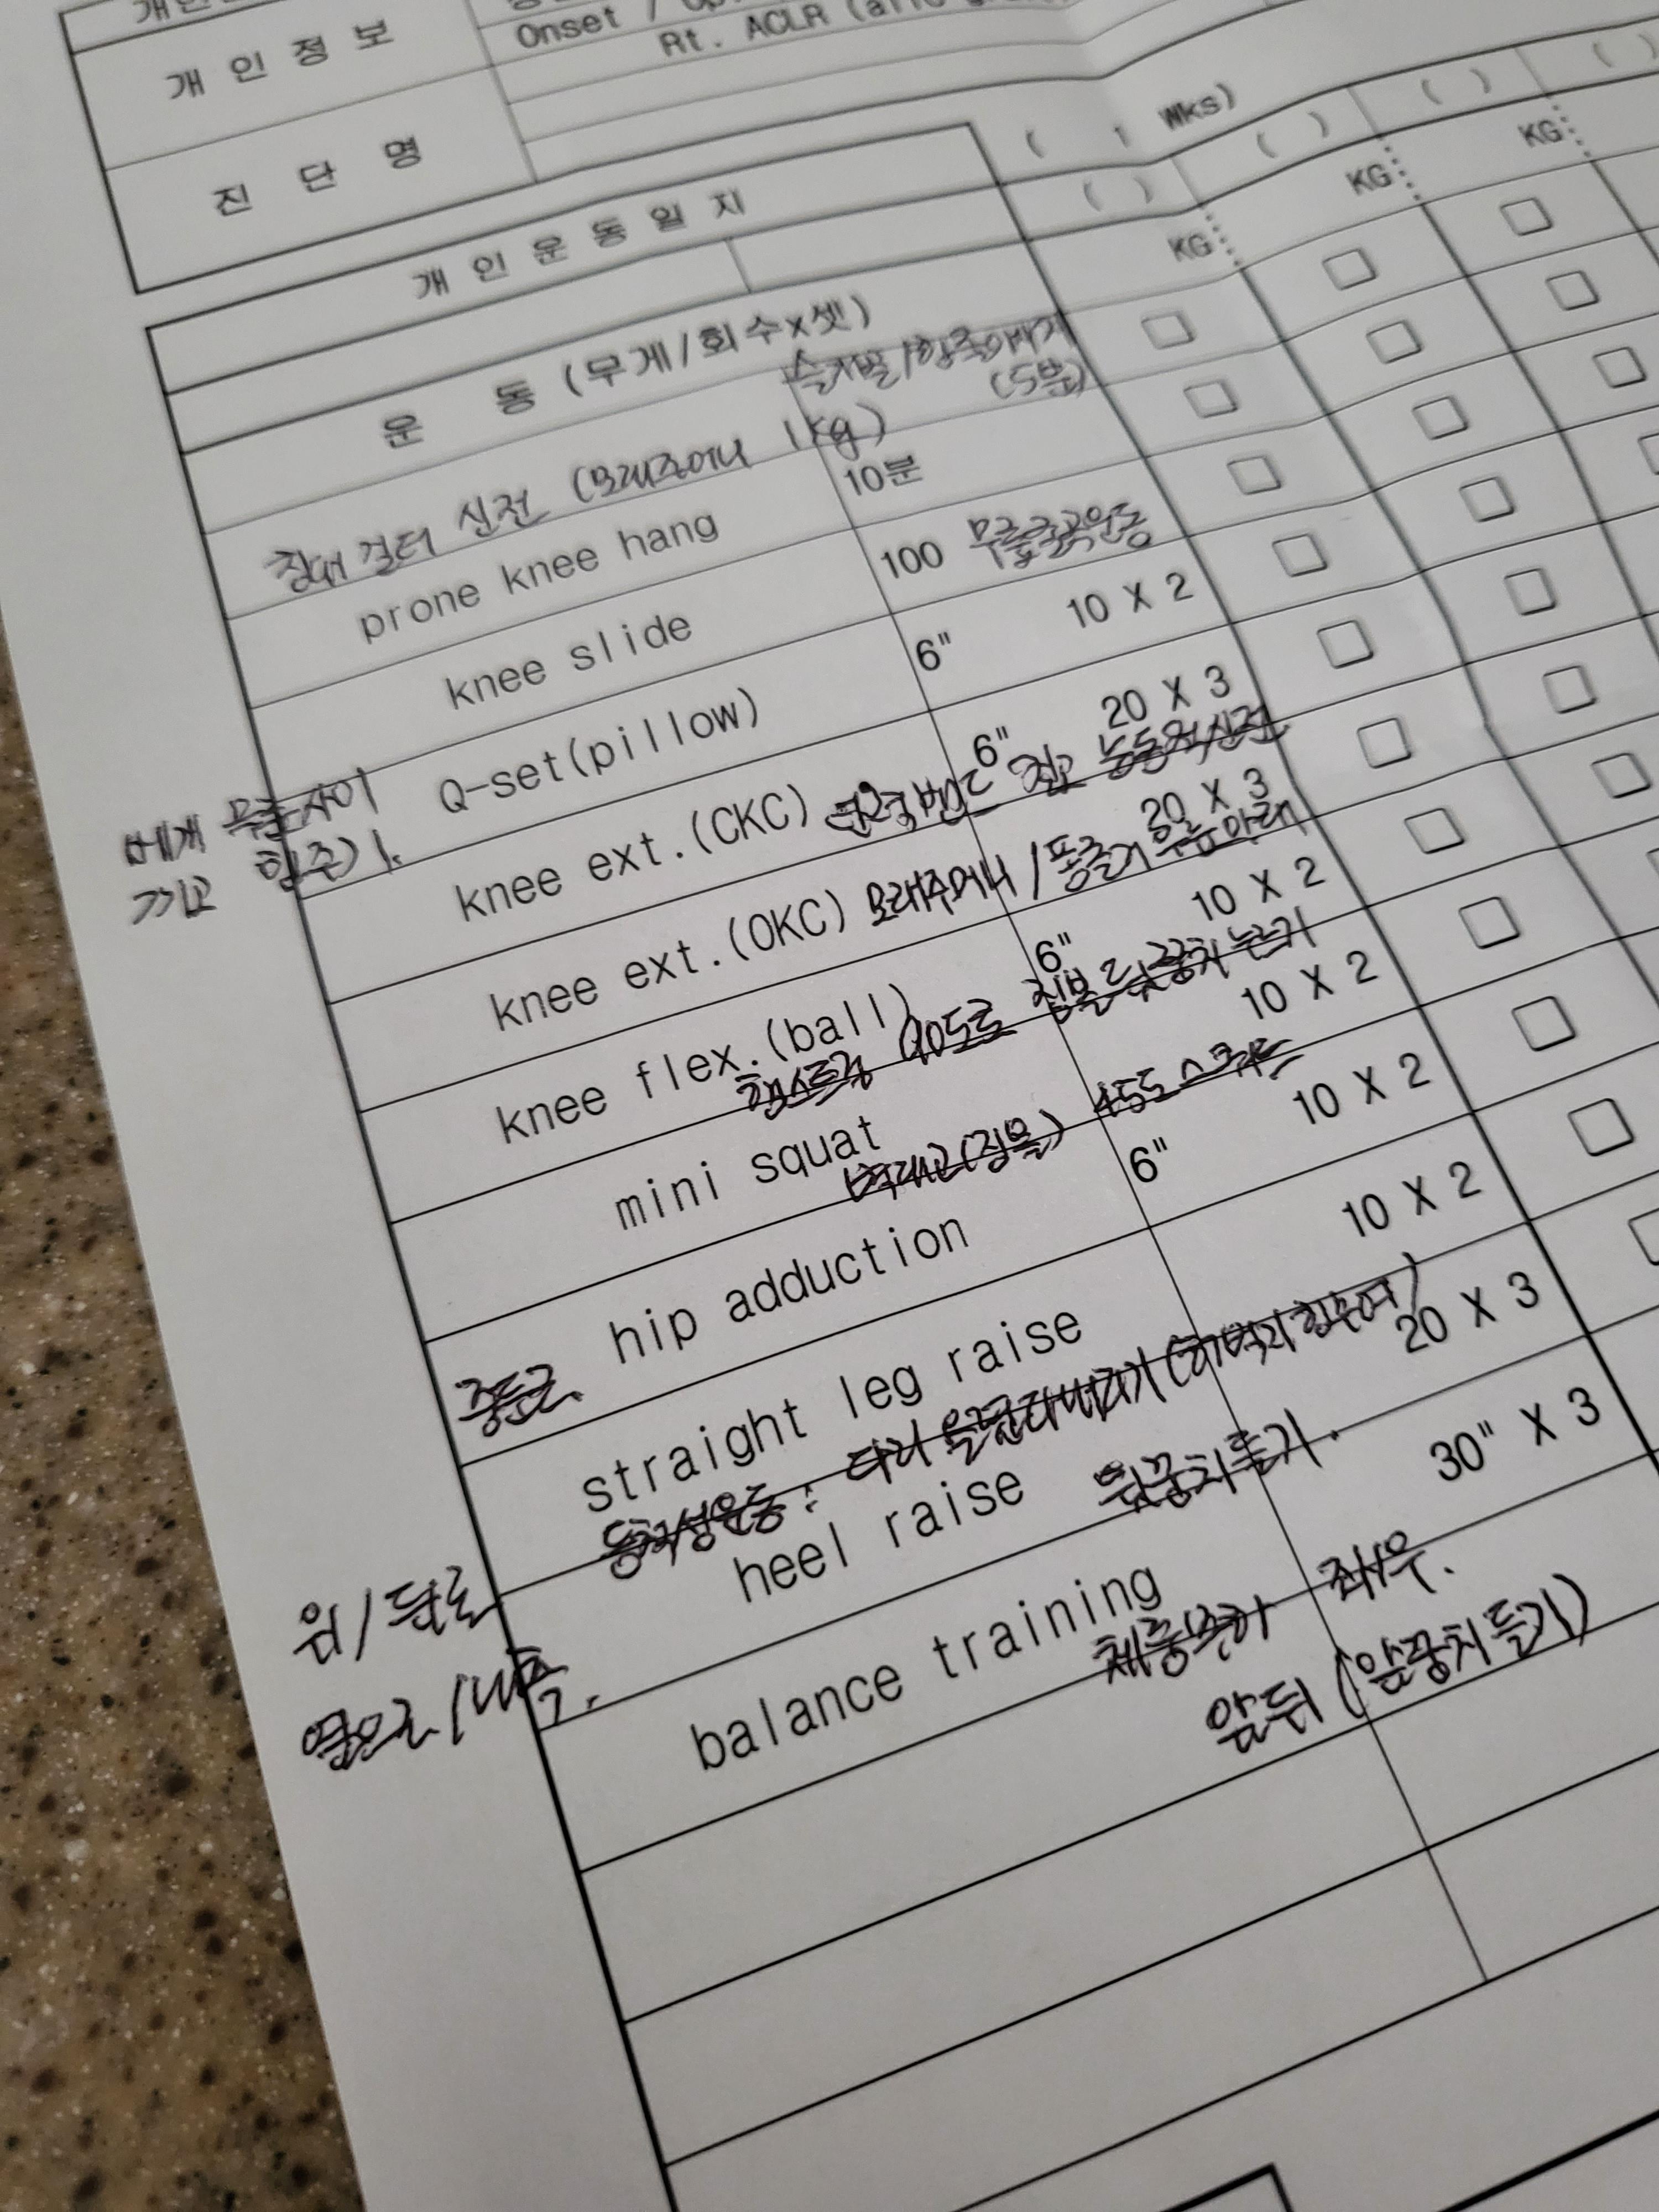 개 인 정 보
Onset /
Rt. ACLR
진 단 명
( 1 Wks)
개 인 운 동 일 지
( ) ( ) ( ) ( )
운 동 (무게/회수x셋)
KG KG KG
수건발/한쪽
(5분)
침대 걸터 신전 (모래주머니 1kg)
prone knee hang 10분
knee slide 100 무릎굴곡운동
Q-set(pillow) 6" 10 X 2
베개 무릎사이
끼고 힘주기.
knee ext.(CKC) 6" 20 X 3
탄력밴드 잡고 능동적신전
knee ext.(OKC) 20 X 3
모래주머니 / 무릎아래
knee flex.(ball) 6" 10 X 2
햄스트링 90도로 짐볼 뒤꿈치 누르기
mini squat 10 X 2
벽대고(짐볼) 45도 스쿼트
hip adduction 6" 10 X 2
중둔근.
straight leg raise 10 X 2
등척성운동 : 다리 들기 (허벅지 힘주어)
위/뒤로
옆으로/내측.
heel raise 뒤꿈치들기. 20 X 3
balance training 30" X 3
체중부하 좌/우.
앞뒤 (앞꿈치들기)